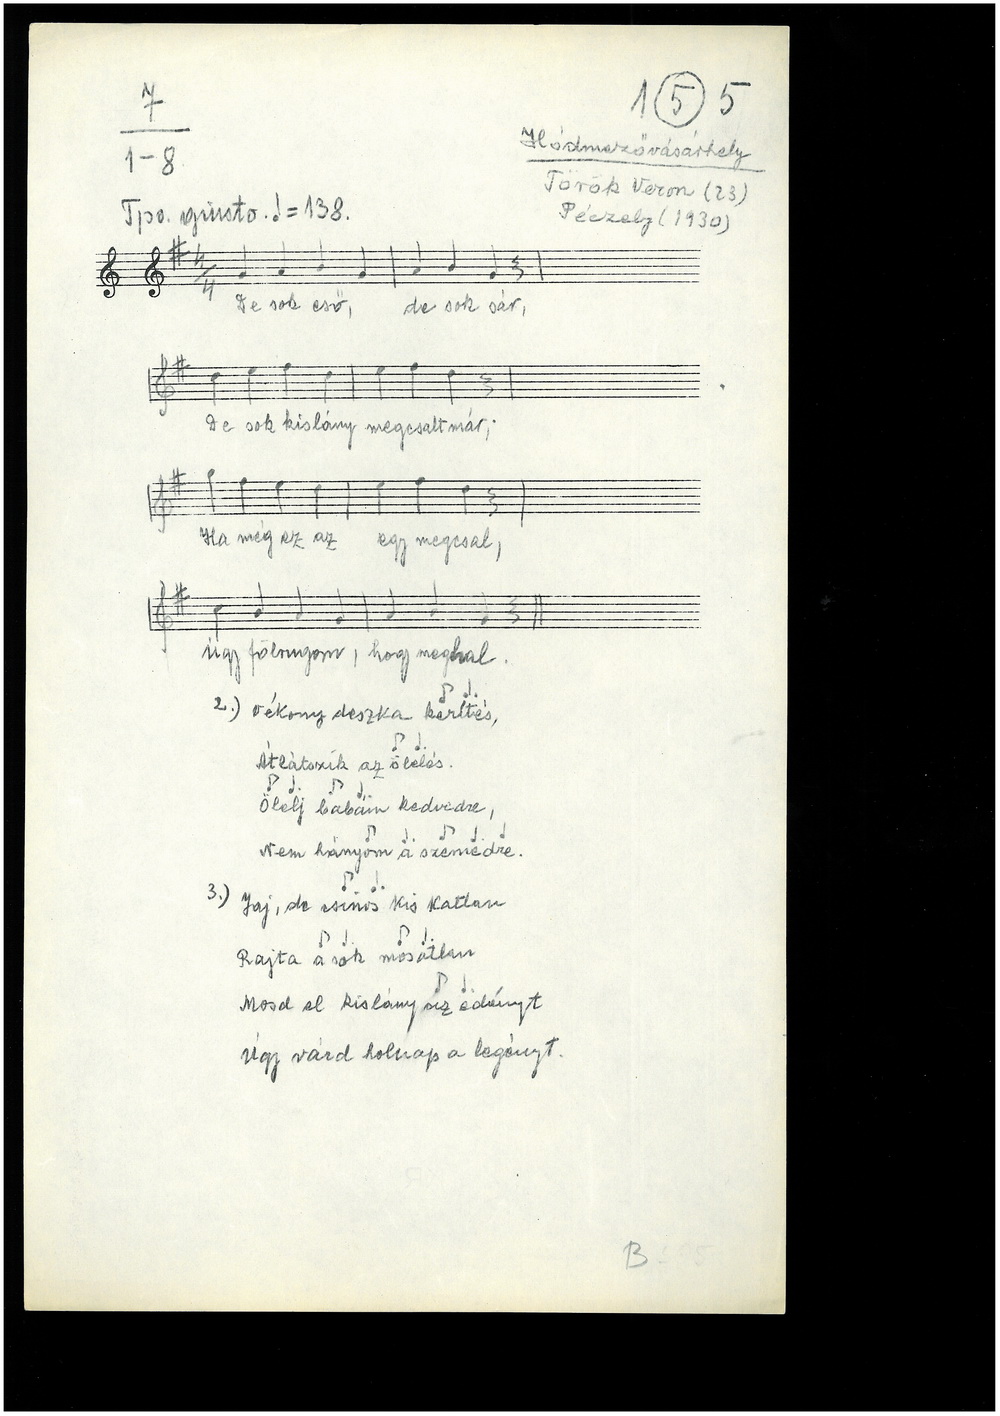 7
1-8
1 5 5
Hódmezővásárhely
Török Veron (23)
Péczely (1930)
Tpo. giusto. ♩=138.
4/4
De sok eső, de sok sár,
De sok kislány megcsalt már,
Ha még ez az egy megcsal,
Úgy fölrugom, hogy meghal.
2.) Vékony deszka kerítés,
Átlátszik az ölelés.
Ölelj babám kedvedre,
Nem hányom a szemedre.
3.) Jaj, de csinos kis katlan
Rajta a sok mosatlan
Mosd el kislány az edényt
Úgy várd holnap a legényt.
B